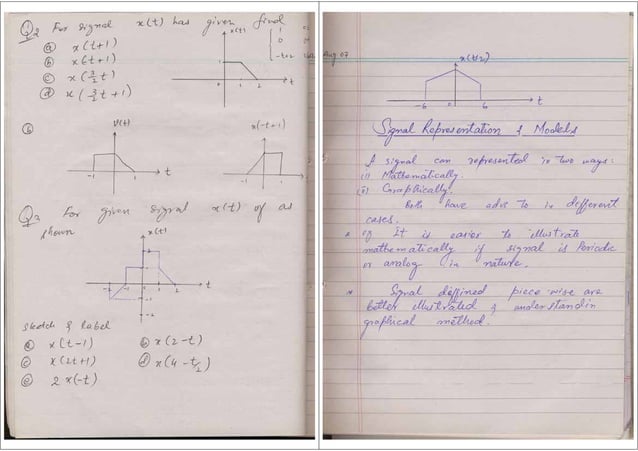 Q2 For signal x(t) has given find
a x(t+1)
b x(-t+1)
c x(3/2 t)
d x(3/2 t + 1)
x(t)
1
0
-t+2
1
0 1 2 t
b v(t)
-1 1 t
x(-t+1)
-1 1
Q3 For given signal x(t) of as
shown
x(t)
-2 -1 1 2 t
-1
-2
sketch & label
a x(t-1) b x(2-t)
c x(2t+1) d x(4-t/2)
e 2x(-t)
Aug 07
x(t/2)
-6 0 6 t
Signal Representation & Models
A signal can represented in two ways:
(i) Mathematically.
(ii) Graphically.
Both have adve to in different
cases.
If It is easier to illustrate
mathematically if signal is Periodic
or analog in nature.
Signal deffined piece wise are
better illustrated & understandin
graphical method.